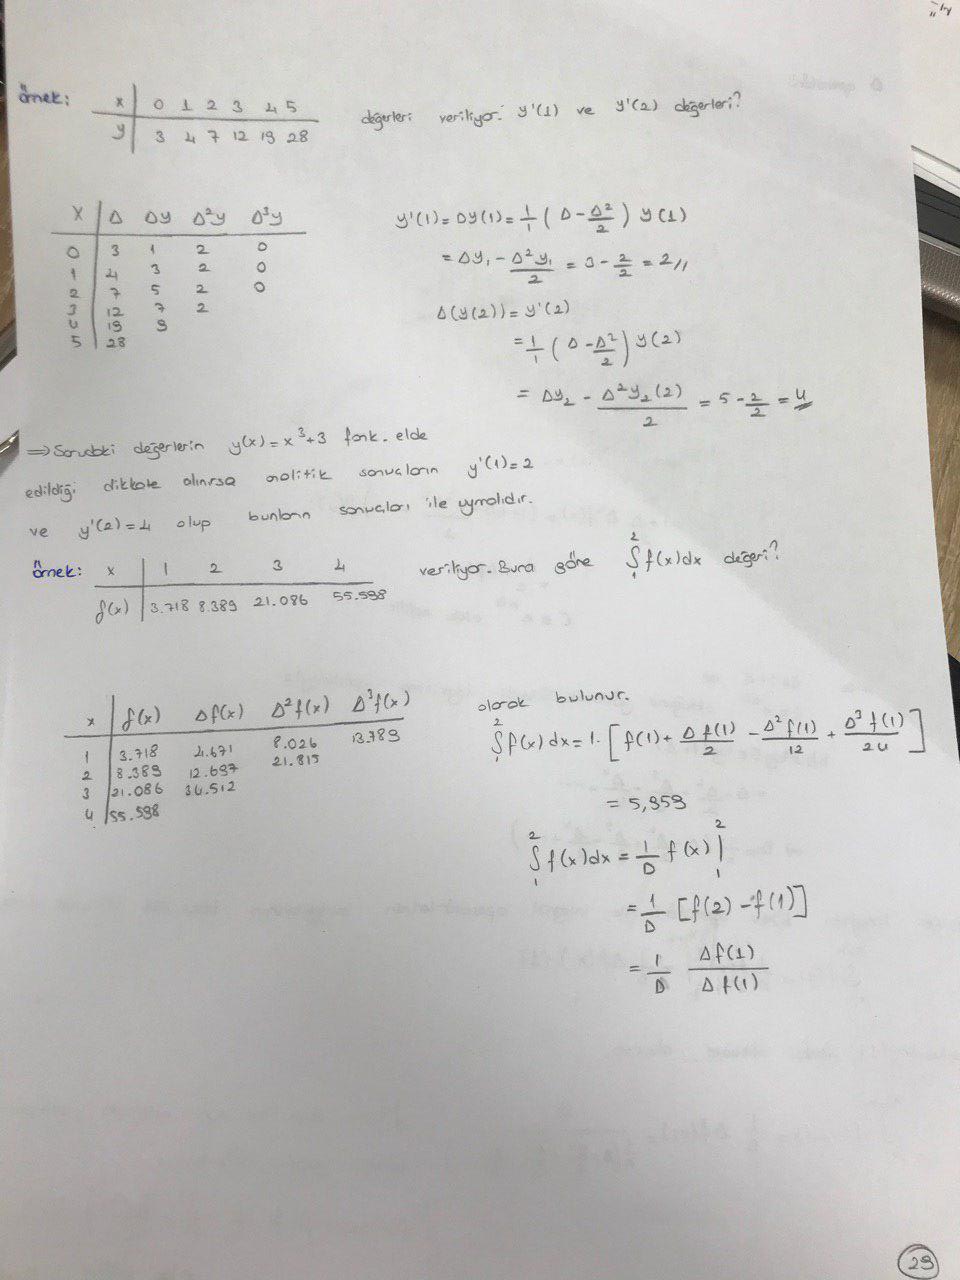 örnek: x | 0 1 2 3 4 5
y | 3 4 7 12 19 28
değerleri veriliyor. y'(1) ve y'(2) değerleri?
x | Δ Δy Δ²y Δ³y
0 | 3 1 2 0
1 | 4 3 2 0
2 | 7 5 2 0
3 | 12 7 2
4 | 19 9
5 | 28
y'(1) = Dy(1) = 1/1 (Δ - Δ²/2) y(1)
= Δy₁ - Δ²y₁/2 = 3 - 2/2 = 2//
Δ(y(2)) = y'(2)
= 1/1 (Δ - Δ²/2) y(2)
= Δy₂ - Δ²y₂(2)/2 = 5 - 2/2 = 4
⇒ Sorudaki değerlerin y(x) = x³+3 fonk. elde
edildiği dikkate alınırsa analitik sonuçların y'(1)=2
ve y'(2)=4 olup bunların sonuçları ile uymalıdır.
örnek: x | 1 2 3 4
f(x) | 3.718 8.389 21.086 55.598
veriliyor. Buna göre ∫₁² f(x)dx değeri?
x | f(x) Δf(x) Δ²f(x) Δ³f(x)
1 | 3.718 4.671 8.026 13.789
2 | 8.389 12.697 21.815
3 | 21.086 34.512
4 | 55.598
olarak bulunur.
∫₁² f(x)dx = 1. [f(1) + Δf(1)/2 - Δ²f(1)/12 + Δ³f(1)/24]
= 5,959
∫₁² f(x)dx = 1/D f(x) |₁²
= 1/D [f(2) - f(1)]
= 1/D Δf(1)/Δf(1)
29